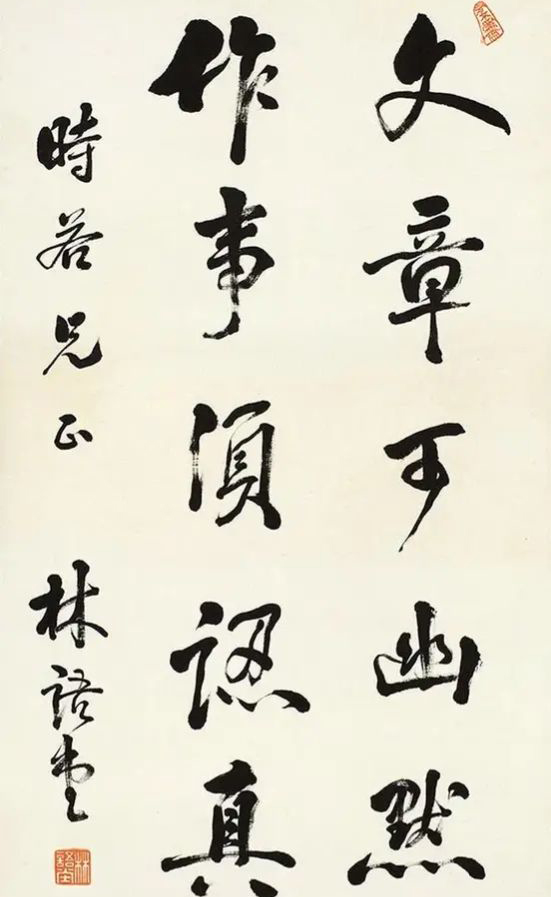 文章可幽默
作事須認真
時若兄正
林語堂
林語堂